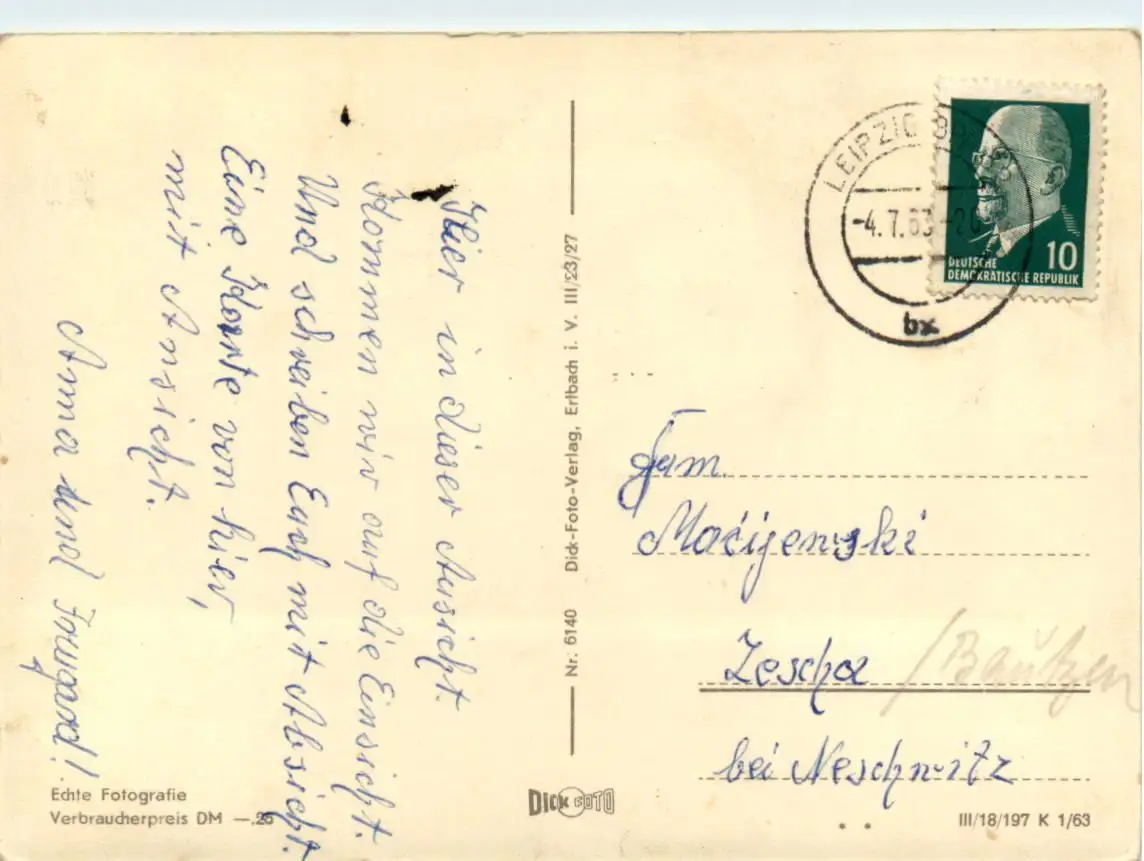 Hier in dieser Aussicht.
Kommen wir auf die Einsicht.
Und schreiben Euch mit Absicht.
Eine Karte von hier,
mit Ansicht.
Anna und Irmgard!
Echte Fotografie
Verbraucherpreis DM —.25
Nr. 6140 Dick-Foto-Verlag, Erlbach i. V. III/23/27
DICK FOTO
LEIPZIG
-4.7.63-20
bx
10
DEUTSCHE
DEMOKRATISCHE REPUBLIK
Fam.
Zescha /Bautzen
bei Neschwitz
III/18/197 K 1/63